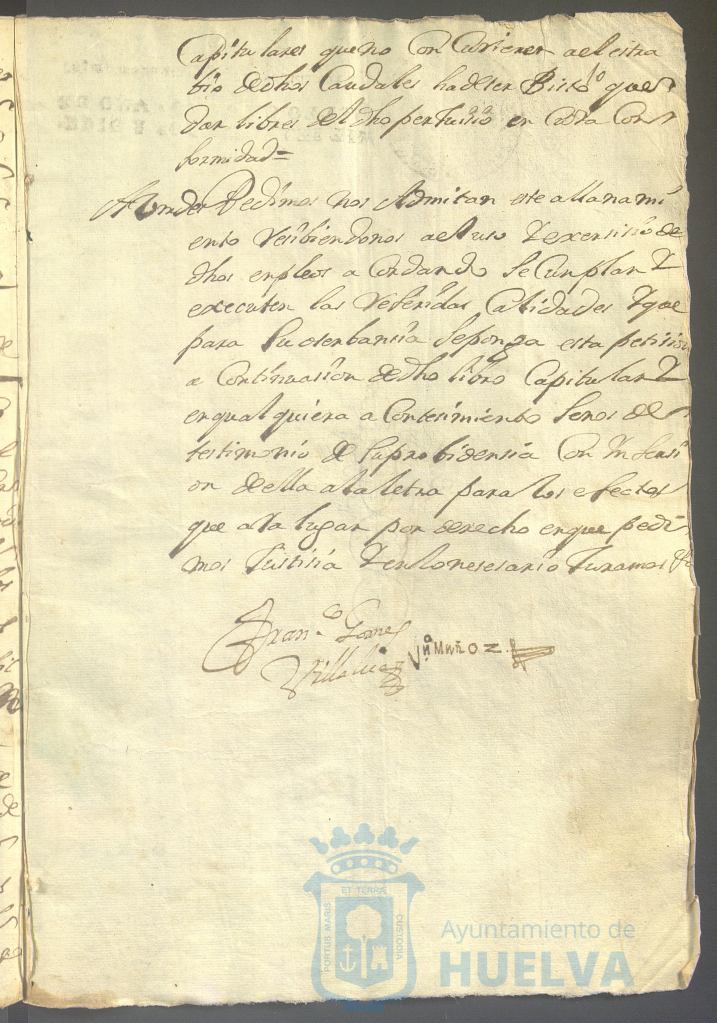 Capitulares que no Concurieren a el estra
bio de dhos Caudales ha de ser Bisto que
dar libres del dho perjuisio en esta Con
formidad=
A Vmdes Pedimos nos Admitan este allanami
ento resibiendonos a el uso Y exersisio de
dhos empleos a Cordando Se Cunplan Y
executen las referidas Calidades Y que
para Su oserbansia Se ponga esta petision
a Continuasion de dho libro Capitular Y
en qual quiera a Contesimiento Se nos de
testimonio de Su probidensia Con Ynsersi
on de ella a la letra para los efectos
que alla lugar por derecho en que pedi
mos Justisia Y en lo nesesario Juramos
Fran.co Gomes
Villalua
Jn.a MUÑOZ
PORTUS MARIS
ET TERRÆ
CUSTODIA
Ayuntamiento de
HUELVA